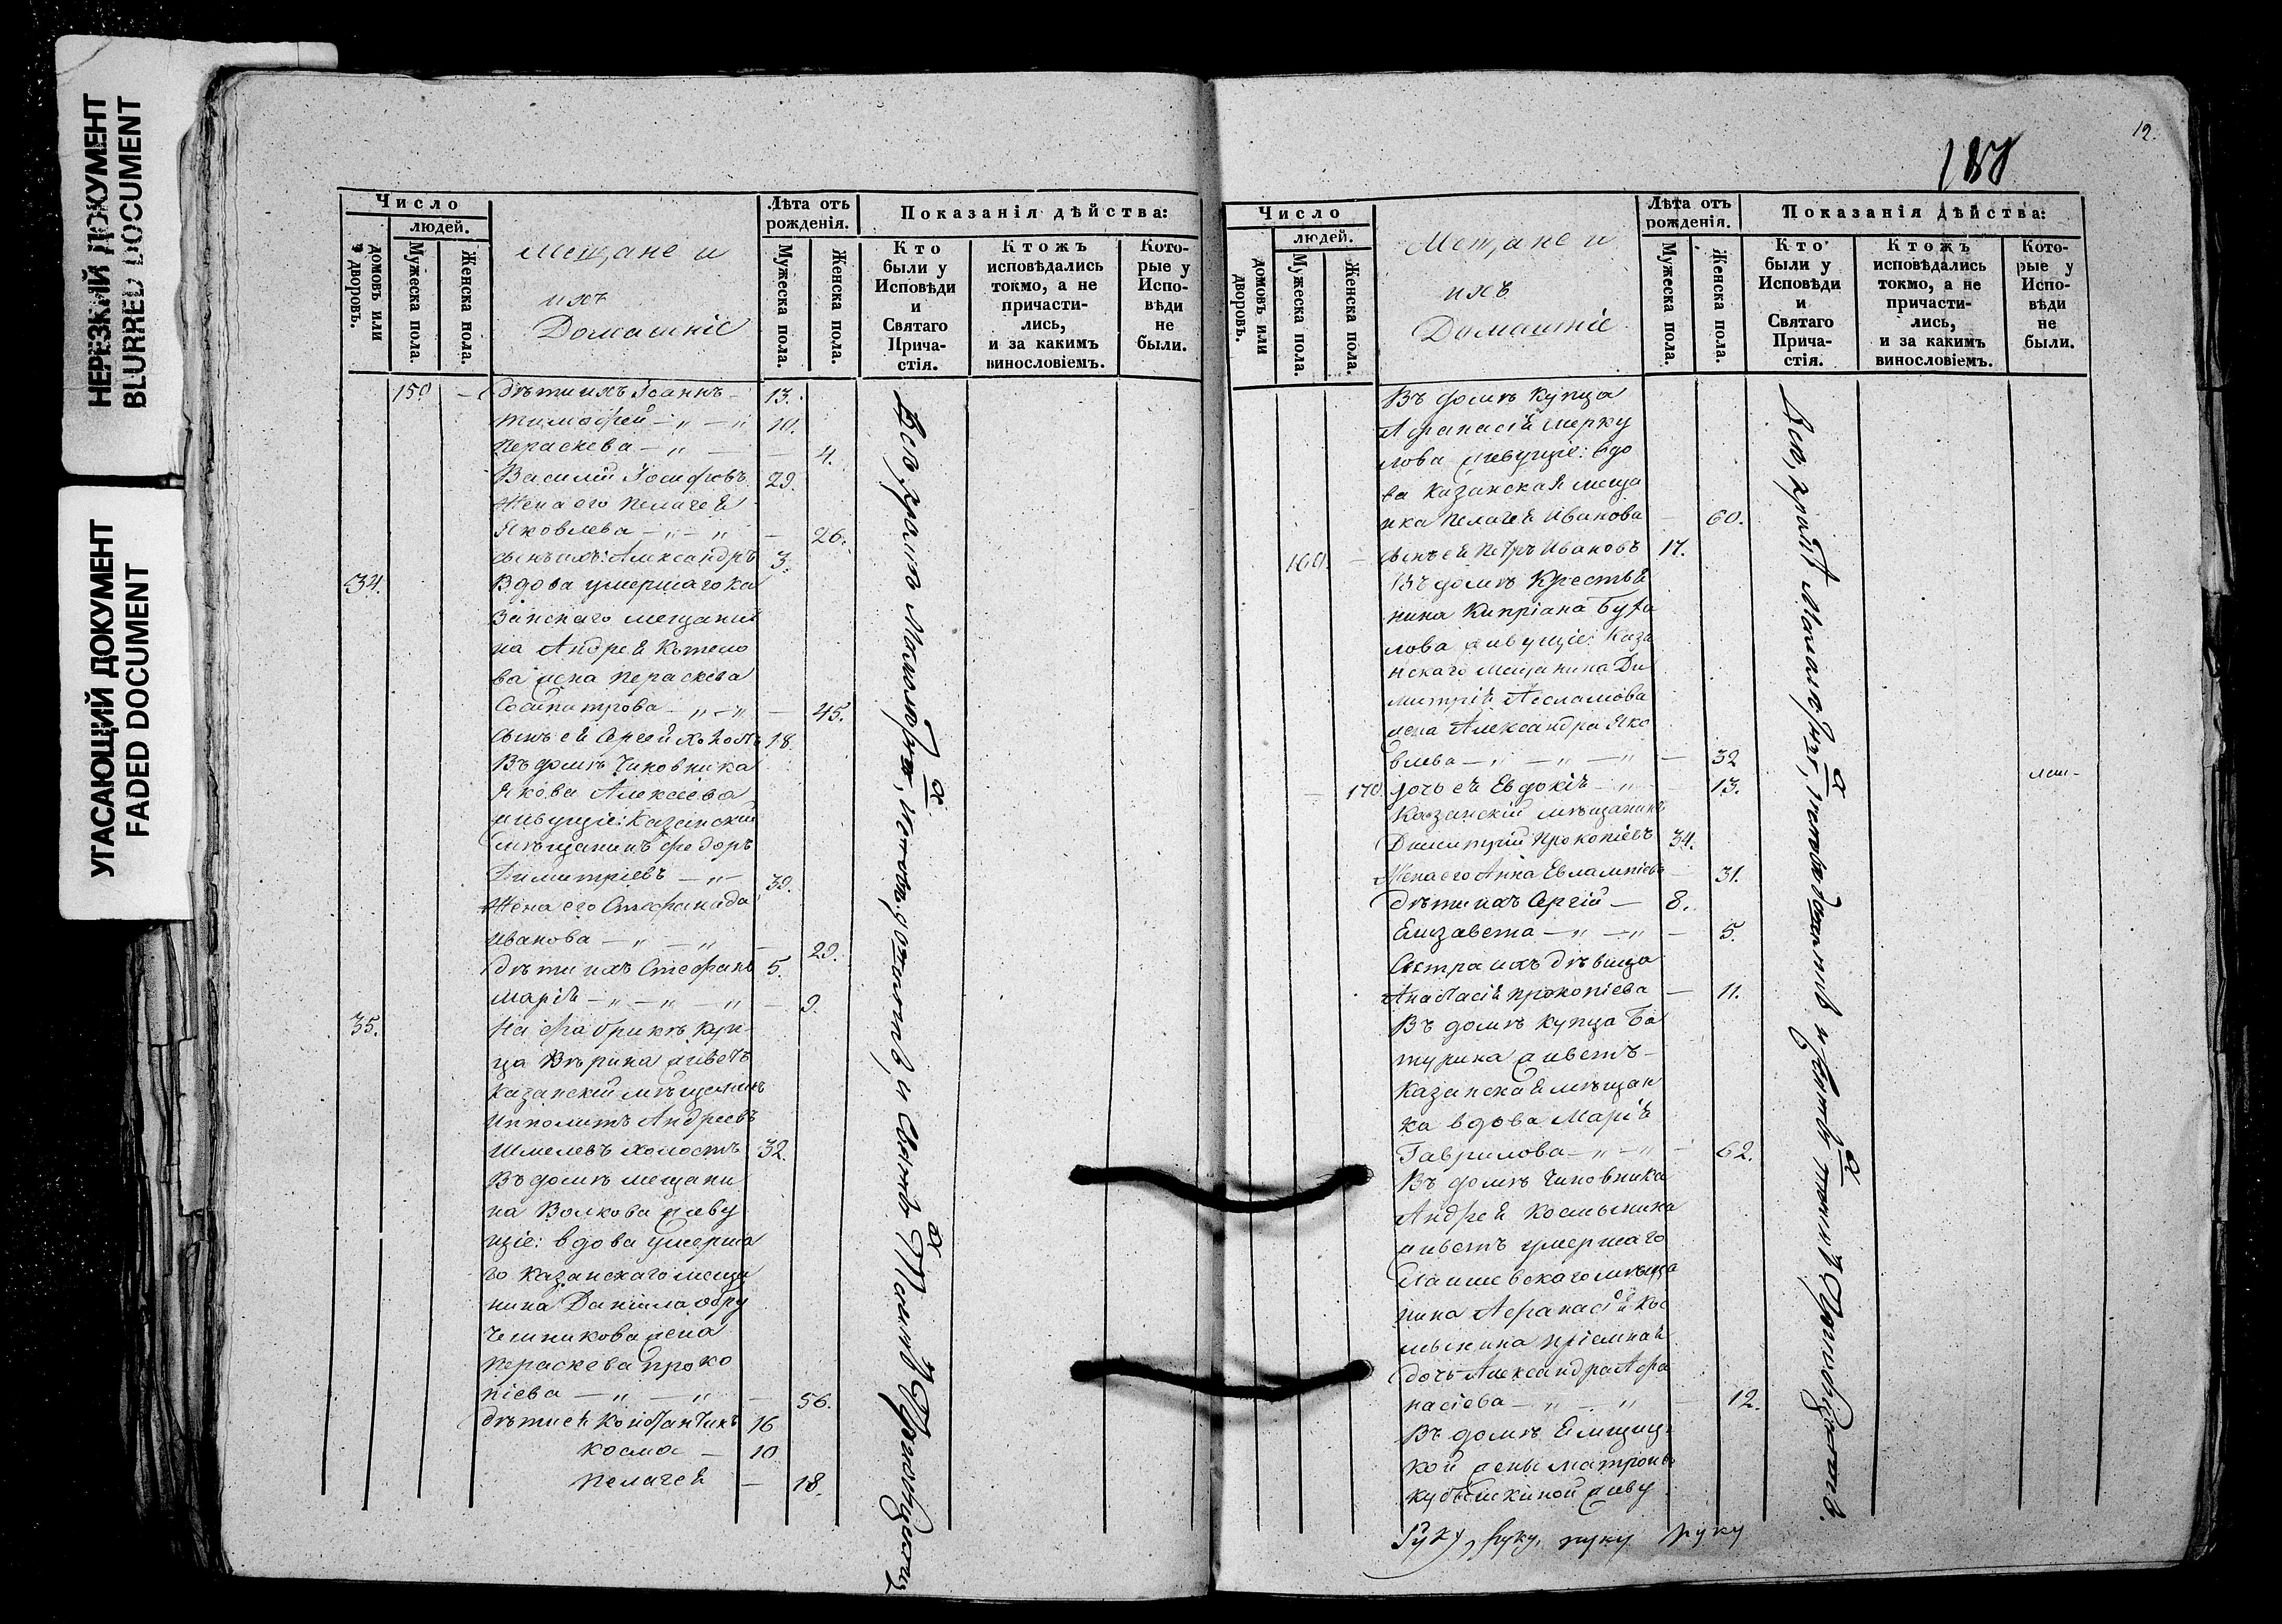 НЕРЕЗКИЙ ДОКУМЕНТ
BLURRED DOCUMENT
УГАСАЮЩИЙ ДОКУМЕНТ
FADED DOCUMENT
Число
людей.
домовъ или дворовъ.
Мужеска пола.
Женска пола.
Мещане и
ихъ
Домашніе
Лѣта отъ рожденія.
Мужеска пола.
Женска пола.
Показанія дѣйства:
Кто были у Исповѣди и Святаго Прича- стія.
Ктожъ исповѣдались токмо, а не причасти- лись, и за какимъ винословіемъ.
Кото- рые у Испо- вѣди не были.
150 дѣти ихъ Іоаннъ 13.
Тимофей — „ — „ 10.
Параскева — „ — 4.
Василій Іосифовъ 29.
Жена его Пелагея
Яковлева — „ — „ — 26.
сынъ ихъ: Александръ 3.
34. Вдова умершаго Ка
занскаго мещани
на Андрея
ва жена Параскева
Сосипатрова — „ — „ — 45.
сынъ ея Сергей холостъ 18.
Въ домѣ Чиновника
Якова Алексеева
живущіе: Казанскій
мѣщанинъ Федоръ
Димитріевъ — „ — 39.
Жена его Стефанида
Иванова — „ — „ — 29.
дѣти ихъ Стефанъ 5.
Марія — „ — „ — „ — 9.
35. На фабрикѣ куп-
ца живетъ
Казанскій мѣщанинъ
Ипполитъ Андреевъ
Шмелевъ холостъ 32.
Въ домѣ мещани
на Волкова живу
щіе: вдова умерша
го Казанскаго меща
нина Даніила Обру
чешникова жена
Параскева Проко
піева — „ — „ — 56.
дѣти ея Константинъ 16
Косма — 10
Пелагея — 18.
12.
188
Число
людей.
домовъ или дворовъ.
Мужеска пола.
Женска пола.
Мещане и
ихъ
Домашніе
Лѣта отъ рожденія.
Мужеска пола.
Женска пола.
Показанія дѣйства:
Кто были у Исповѣди и Святаго Прича- стія.
Ктожъ исповѣдались токмо, а не причасти- лись, и за какимъ винословіемъ.
Кото- рые у Испо- вѣди не были.
Въ домѣ Купца
Афанасія Мерку
лова живущіе: вдо
ва Казанская меща
нка Пелагея Иванова — 60.
160. — сынъ ея Петръ Ивановъ 17.
Въ домѣ Крестья
нина Кипріана
лова живущіе: Каза
нскаго мещанина Ди
митрія Асламова
жена Александра Яко
влева — „ — „ — „ — 32
170. дочь ея Евдокія — „ — 13.
Казанскій мѣщанинъ
Димитрій Прокопіевъ 34.
Жена его Анна Евлампіева — 31.
дѣти ихъ Сергій — 8.
Елизавета — „ — „ — 5.
Сестра ихъ дѣвица
Анастасія Прокопіева — 11.
Въ домѣ купца Ба
турина живетъ —
Казанская мѣщан
ка вдова Марія
Гаврилова — „ — „ — 62.
Въ домѣ Чиновника
Андрея Космынина
живетъ умершаго
Лаишевскаго мѣща
нина Афанасія Кос
мынина пріемная
дочь Александра Афа
насіева — „ — „ — 12.
Въ домѣ Ямщиц-
кой жены Матроны
живу
руку, руку, руку руку